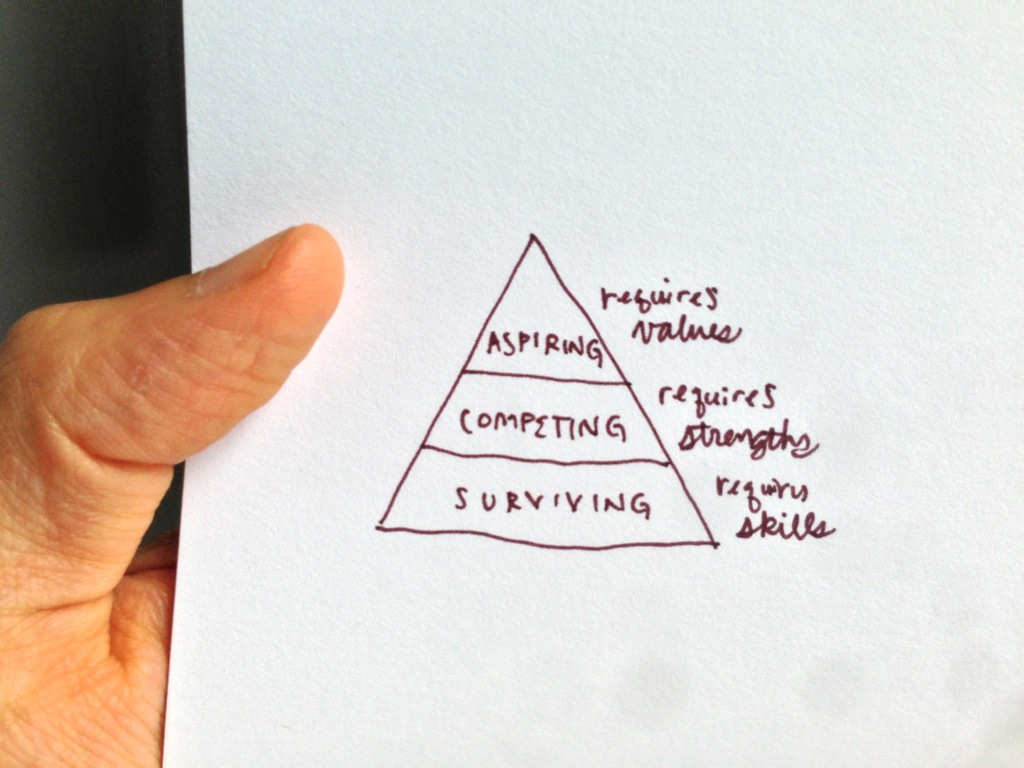 requires
values
ASPIRING
requires
strengths
COMPETING
requires
skills
SURVIVING